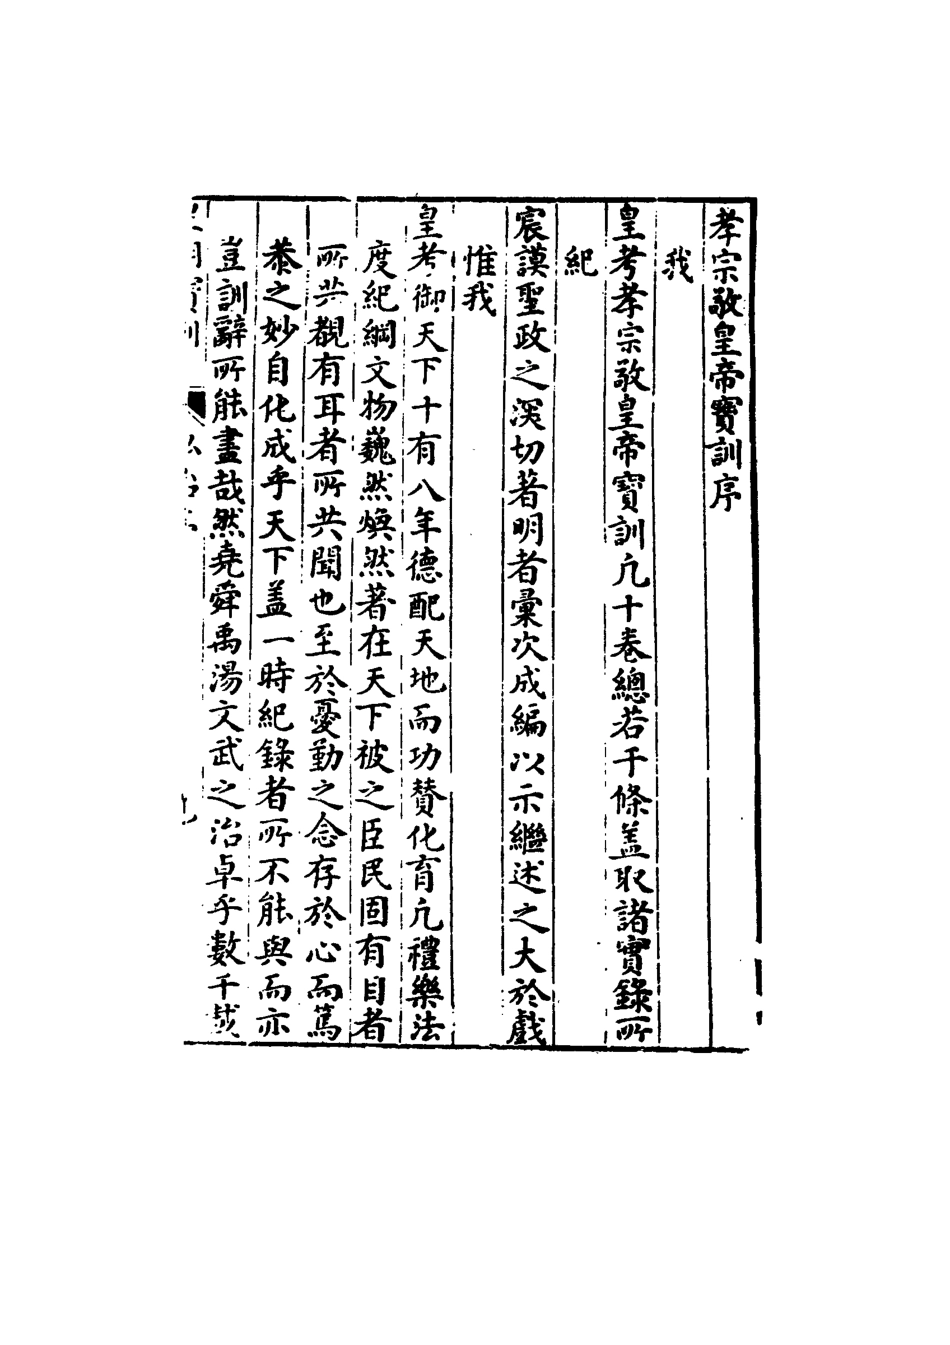 孝宗敬皇帝寶訓序
我
皇考孝宗敬皇帝寶訓凡十卷總若干條盖取諸實錄所
紀
宸謨聖政之深切著明者彙次成編以示繼述之大於戲
惟我
皇考御天下十有八年德配天地而功賛化育凡禮樂法
度紀綱文物巍然煥然著在天下被之臣民固有目者
所共覩有耳者所共聞也至於憂勤之念存於心而篤
恭之妙自化成乎天下盖一時紀錄者所不能與而亦
豈訓辭所能盡哉然堯舜禹湯文武之治卓乎數千載